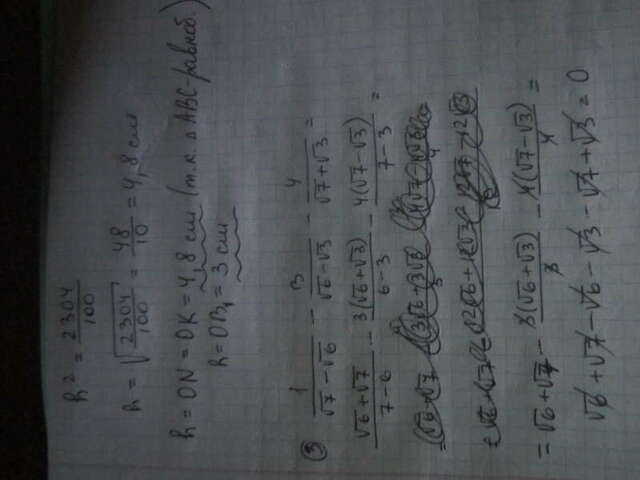 h² = 2304/100
h = √(2304/100) = 48/10 = 4,8 см
h = ON = OK = 4,8 см (т.к. △ABC-равноб.)
h = OB₁ = 3 см
③ 1/(√7 − √6) − 3/(√6 − √3) − 4/(√7 + √3) =
(√6 + √7)/(7 − 6) − 3(√6 + √3)/(6 − 3) − 4(√7 − √3)/(7 − 3) =
= √6 + √7 − 3(√6 + √3)/3 − 4(√7 − √3)/4 =
√6 + √7 − √6 − √3 − √7 + √3 = 0